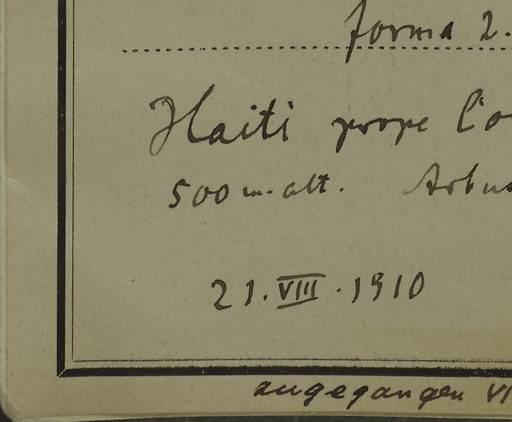 forma 2.
Haiti prope l'o
500 m. alt. Arbus
21. VIII. 1910
angegangen VI